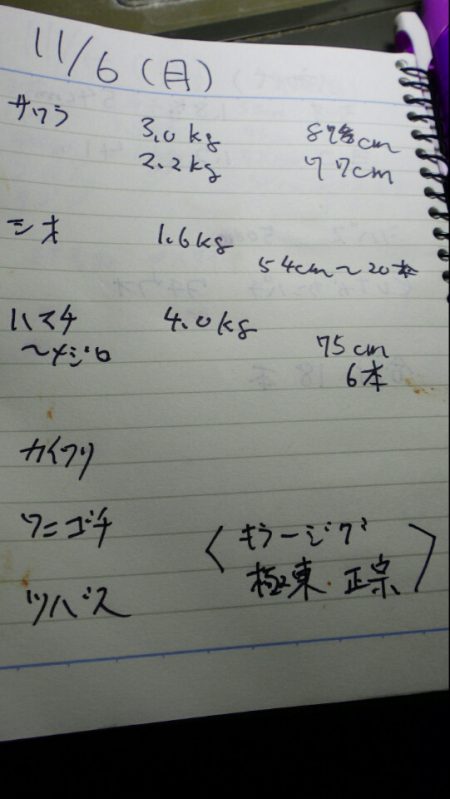 11/6(月)
サワラ 3.0kg 87cm
2.2kg 77cm
シオ 1.6kg
54cm〜20本
ハマチ 4.0kg
〜メジロ 75cm
6本
カイワリ
ワニゴチ 〈キラージグ
ツバス 極東.正宗〉